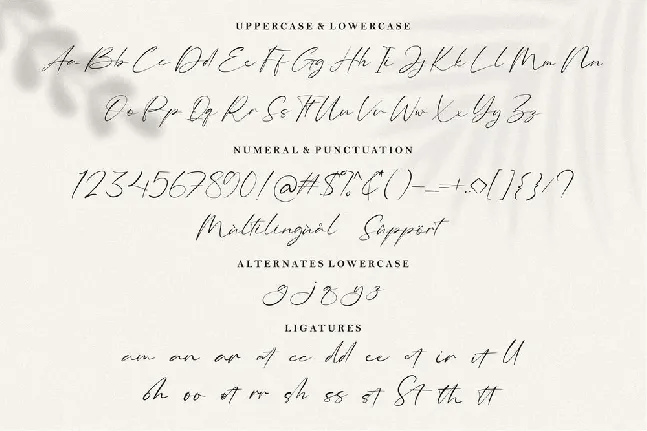 UPPERCASE & LOWERCASE
Aa Bb Cc Dd Ee Ff Gg Hh Ii Jj Kk Ll Mm Nn
Oo Pp Qq Rr Ss Tt Uu Vv Ww Xx Yy Zz
NUMERAL & PUNCTUATION
1234567890!@#$%
Multilingual Support
ALTERNATES LOWERCASE
g j z y z
LIGATURES
am an ar at cc dd ee et ir it ll
oh oo ot rr sh ss st St th tt